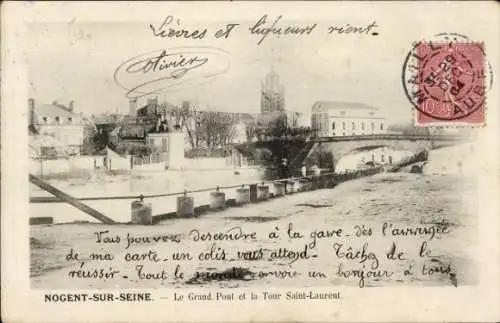 Lièvres et liqueurs rient.
Olivier
MAILLY
29
DEC
04
AUBE
10
Vous pouvez descendre à la gare dès l'arrivée
de ma carte, un colis vous attend. Tâchez de le
réussir. Tout le monde envoie un bonjour à tous
NOGENT-SUR-SEINE. — Le Grand Pont et la Tour Saint-Laurent.